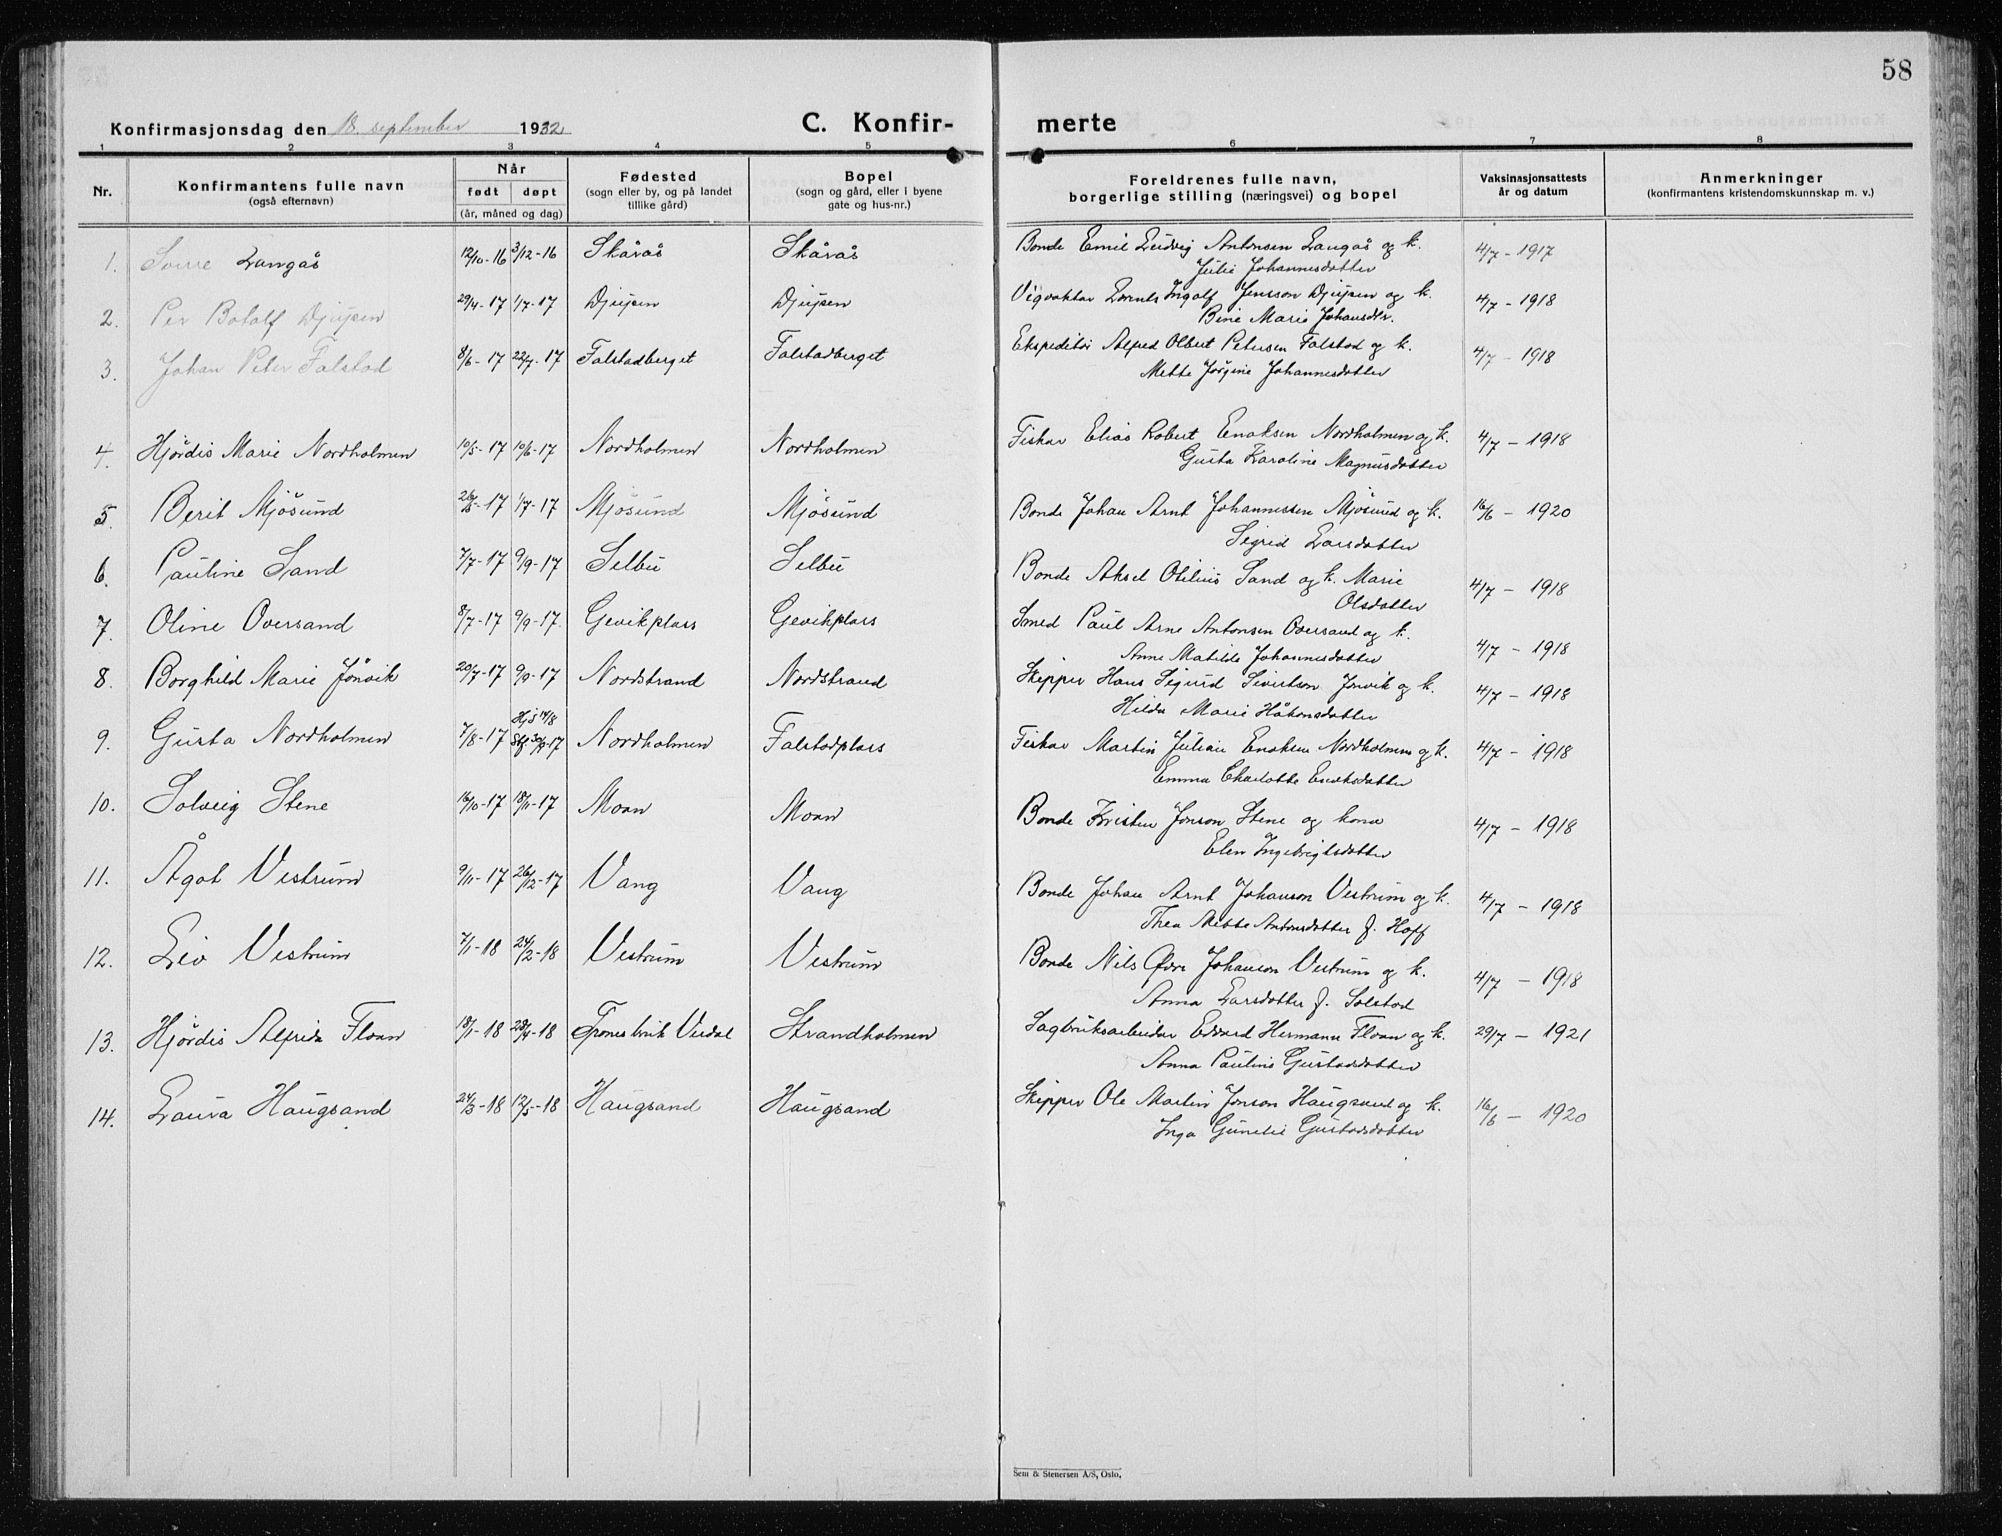 58
Konfirmasjonsdag den 18. september 1932 C. Konfir- merte
1 2 3 4 5 6 7 8
Nr. Konfirmantens fulle navn (også efternavn) Når født døpt (år, måned og dag) Fødested (sogn eller by, og på landet tillike gård) Bopel (sogn og gård, eller i byene gate og hus-nr.) Foreldrenes fulle navn, borgerlige stilling (næringsvei) og bopel Vaksinasjonsattests år og datum Anmerkninger (konfirmantens kristendomskunnskap m. v.)
1. Sverre Langås 12/10-16 3/12-16 Skårås Skårås Bonde Emil Ludvig Antonsen Langås og k. 4/7-1917
Julie Johannesdotter
2. Per Botolf Djupen 29/4-17 1/7-17 Djupen Djupen Vegvaktar Lornts Ingolf Jensson Djupen og k. 4/7-1918
Bine Marie Johansdtr.
3. Johan Peter Falstad 8/6-17 22/7-17 Falstadberget Falstadberget Ekspeditør Alfred Olbert Petersen Falstad og k. 4/7-1918
Mette Jørgine Johannesdotter
4. Hjørdis Marie Nordholmen 10/5-17 10/6-17 Nordholmen Nordholmen Fiskar Elias Robert Enoksen Nordholmen og k. 4/7-1918
Gusta Karoline Magnusdotter
5. Berit Mjøsund 26/5-17 1/7-17 Mjøsund Mjøsund Bonde Johan Arnt Johannessen Mjøsund og k. 16/6-1920
Sigrid Larsdotter
6. Pauline Sand 7/7-17 9/9-17 Selbu Selbu Bonde Aksel Otilius Sand og k. Marie 4/7-1918
Olsdotter
7. Oline Oversand 8/7-17 9/9-17 Gevikplass Gevikplass Smed Paul Arne Antonsen Oversand og k. 4/7-1918
Anne Matilde Johannesdotter
8. Borghild Marie Jønvik 20/7-17 9/9-17 Nordstrand Nordstrand Skipper Hans Sigurd Sivertson Jønvik og k. 4/7-1918
Hilda Marie Håkonsdotter
9. Gusta Nordholmen 7/8-17 Hj.d. 14/8 Stf. 30/9-17 Nordholmen Falstadplass Fiskar Martin Julian Enoksen Nordholmen og k. 4/7-1918
Emma Charlotte Enoksdotter
10. Solveig Stene 16/10-17 18/11-17 Moan Moan Bonde Kristen Jonson Stene og kona 4/7-1918
Elen Ingebrigtsdotter
11. Ågot Vestrum 9/11-17 26/12-17 Vang Vang Bonde Johan Arnt Johanson Vestrum og k. 4/7-1918
Thea Mette Antonsdotter f. Hoff
12. Liv Vestrum 7/1-18 24/2-18 Vestrum Vestrum Bonde Nils Øvre Johanson Vestrum og k. 4/7-1918
Anna Larsdotter f. Solstad
13. Hjørdis Alfrida Floan 18/1-18 28/4-18 Trones bruk Verdal Strandholmen Sagbruksarbeidar Edvard Hermann Floan og k. 29/7-1921
Anna Pauline Gustavsdotter
14. Laura Haugsand 24/3-18 12/5-18 Haugsand Haugsand Skipper Ole Martin Jonson Haugsand og k. 16/6-1920
Inga Gunelie Gustavsdotter
Sem & Stenersen A/S, Oslo,